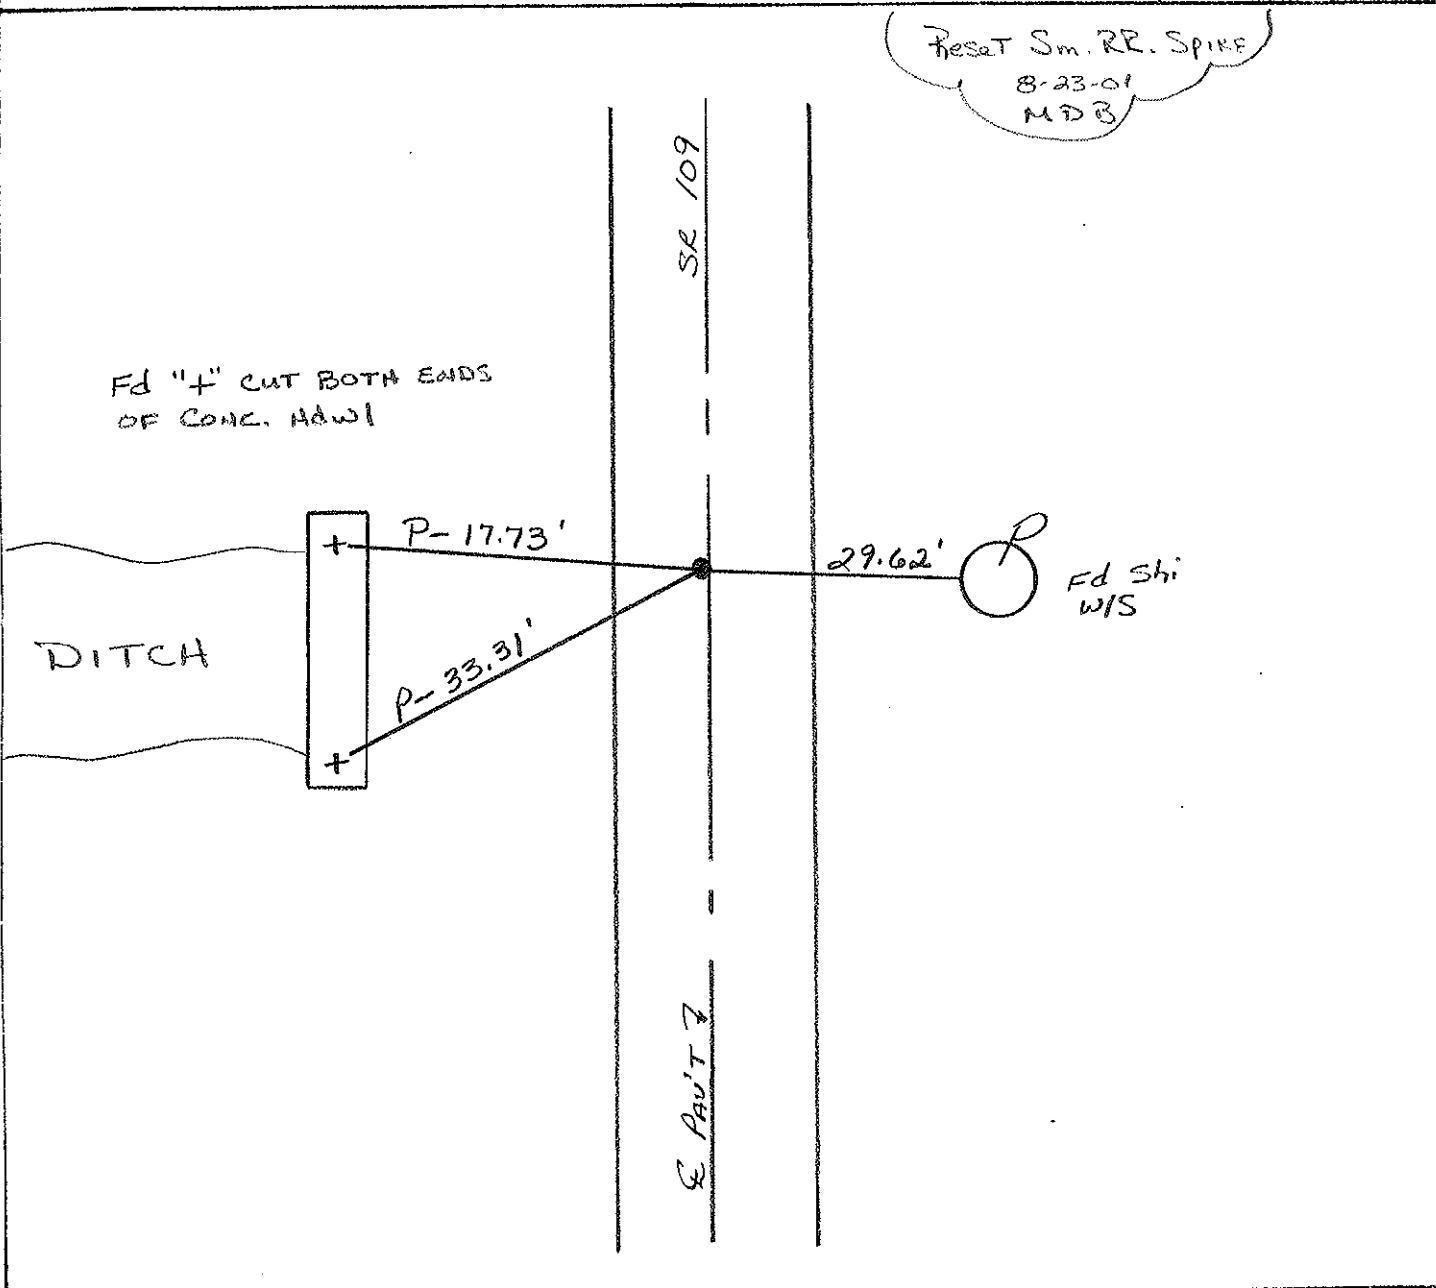 Reset Sm. RR. Spike
8-23-01
MDB
SR 109
Fd "+" CUT BOTH ENDS
OF CONC. Hdwl
P- 17.73'
29.62'
P
Fd Shi
W/S
DITCH
P- 33.31'
℄ PAV'T